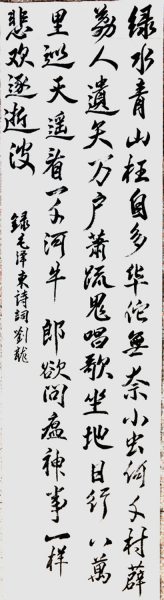 绿水青山枉自多华佗无奈小虫何千村薜
荔人遗矢万户萧疏鬼唱歌坐地日行八万
里巡天遥看一千河牛郎欲问瘟神事一样
悲欢逐逝波
录毛泽东诗词刘龙